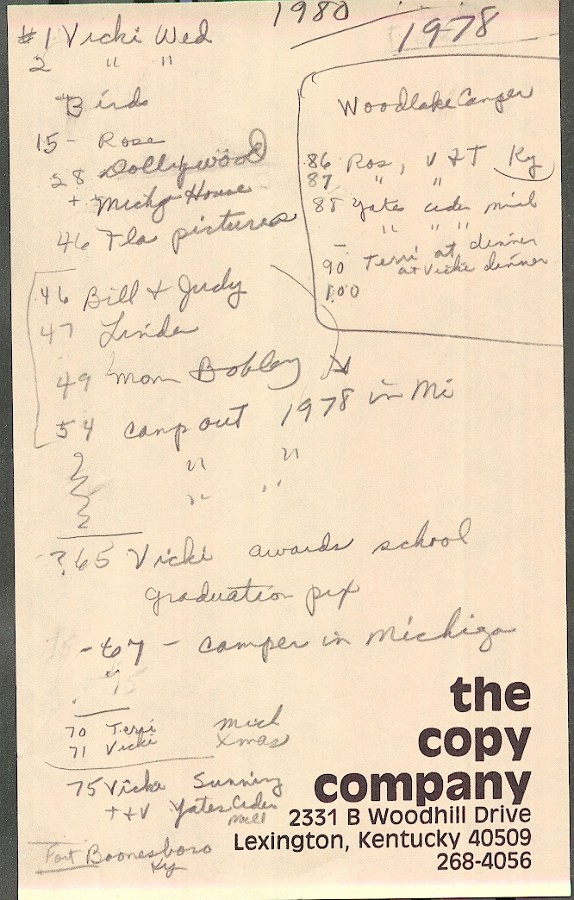 1980
1978
#1 Vicki Wed
2 " "
Birds
15 - Rose
28 Dollywood
+ Michg House
46 Fla pictures
46 Bill & Judy
47 Linda
49 Mom Bobley
54 camp out 1978 in Mi
" "
" "
?65 Vicki awards school
graduation pix
- 67 - camper in Michiga
70 Terri Mich
71 Vicki Xmas
75 Vicki Sunning
T+V Yates Cider
Mill
Fort Boonesboro
Ky
Woodlake Camper
86 Ros, V & T Ky
87 " "
88 Yates cider mill
" " "
90 Terri at dinner
at Vicki dinner
100
the
copy
company
2331 B Woodhill Drive
Lexington, Kentucky 40509
268-4056